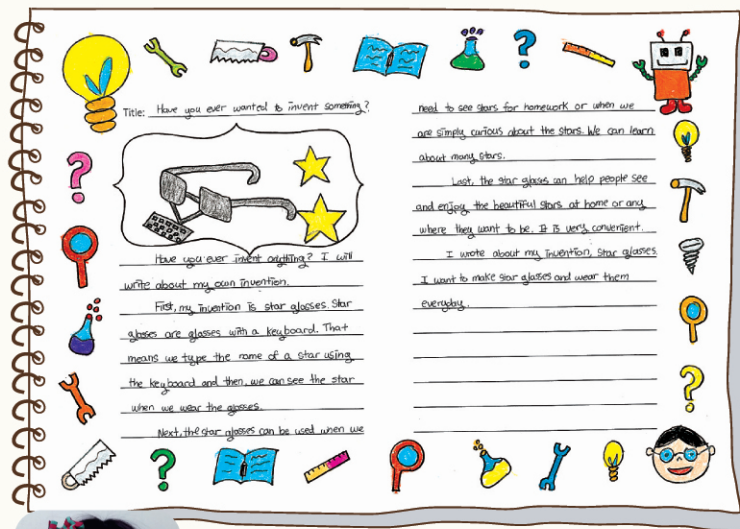 Title: Have you ever wanted to invent something?
Have you ever invent anything? I will
write about my own invention.
First, my invention is star glasses. Star
glasses are glasses with a keyboard. That
means we type the name of a star using
the keyboard and then, we can see the star
when we wear the glasses.
Next, the star glasses can be used when we
need to see stars for homework or when we
are simply curious about the stars. We can learn
about many stars.
Last, the star glasses can help people see
and enjoy the beautiful stars at home or any
where they want to be. It is very convenient.
I wrote about my invention, star glasses.
I want to make star glasses and wear them
everyday.